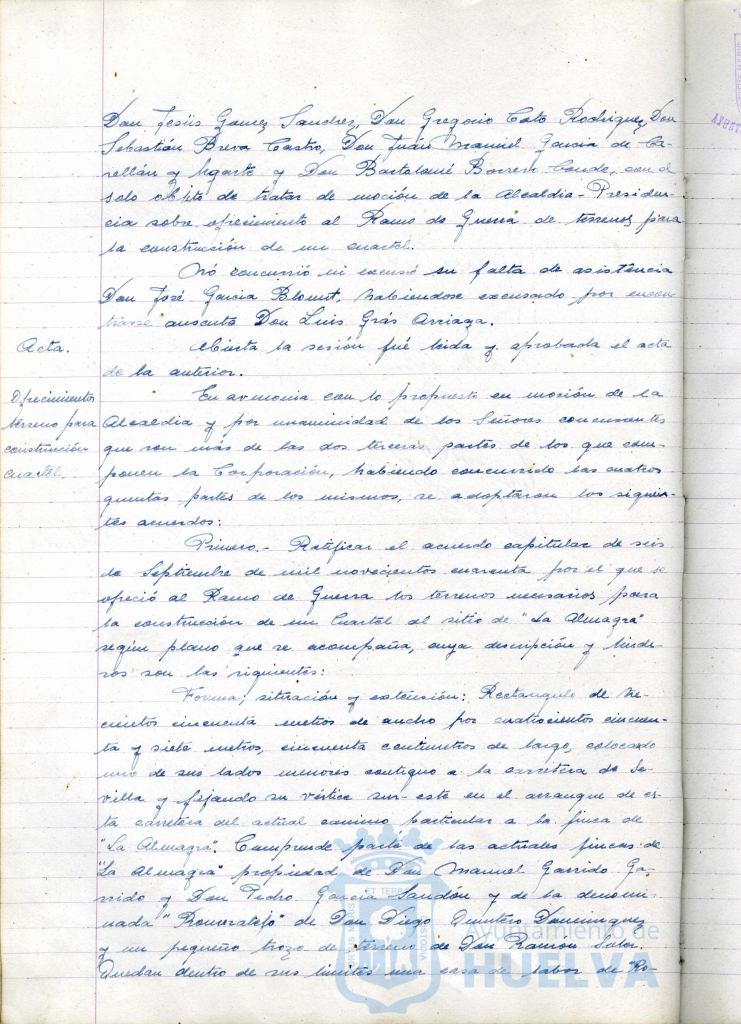 Don Jesús Gomez Sanchez, Don Gregorio Cato Rodriguez, Don
Sebastián Breva Castro, Don Juán Manuel Garcia de Ca-
rellán y Ugarte y Don Bartolomé Borrero Conde, con el
solo objeto de tratar de moción de la Alcaldia-Presiden-
cia sobre ofrecimiento al Ramo de Guerra de terrenos para
la construcción de un cuartel.
Nó concurrió ni excusó su falta de asistencia
Don José Garcia Blount, habiendose excusado por encon-
trarse ausente Don Luis Grás Arriaza.
Acta.
Abierta la sesión fué leida y aprobada el acta
de la anterior.
Ofrecimientos
terreno para
construcción
cuartel.
En armonia con lo propuesto en moción de la
Alcaldia y por unanimidad de los Señores concurrentes
que son más de las dos terceras partes de los que com-
ponen la Corporación, habiendo concurrido las cuatro
quintas partes de los mismos, se adoptaron los siguien-
tes acuerdos:
Primero.- Ratificar el acuerdo capitular de seis
de Septiembre de mil novecientos cuarenta por el que se
ofreció al Ramo de Guerra los terrenos necesarios para
la construcción de un Cuartel al sitio de "La Almagra"
según plano que se acompaña, cuya descripción y linde-
ros son las siguientes:
Forma, situación y extensión: Rectangulo de tre-
cientos cincuenta metros de ancho por cuatrocientos cincuen-
ta y siete metros, cincuenta centimetros de largo, colocado
uno de sus lados menores contiguo a la carretera de Se-
villa y fijando su vértice sur-este en el arranque de es-
ta carretera del actual camino particular a la finca de
"La Almagra". Comprende parte de las actuales fincas de
"La Almagra" propiedad de Don Manuel Garrido Ga-
rrido y Don Pedro Garcia Sandón y de la denomi-
nada "Romeralejo" de Don Diego Quintero Dominguez
y un pequeño trozo de terreno de Don Ramon Soler.
Quedan dentro de sus limites una casa de labor de "Ro-
Ayuntamiento de
HUELVA